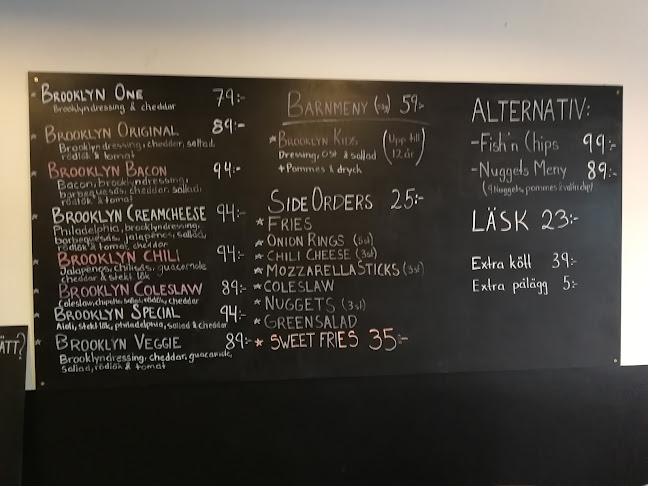 Brooklyn One 79:-
Brooklyndressing & cheddar
Brooklyn Original 89:-
Brooklyndressing, cheddar, sallad,
rödlök & tomat
Brooklyn Bacon 94:-
Bacon, brooklyndressing,
barbequesås, cheddar, sallad,
rödlök & tomat
Brooklyn Creamcheese 94:-
Philadelphia, brooklyndressing,
barbequesås, jalapenos, sallad,
rödlök & tomat, cheddar
Brooklyn Chili 94:-
Jalapenos, chilisås, guacamole
cheddar & stekt lök
Brooklyn Coleslaw 89:-
Coleslaw, sallad, rödlök, cheddar
Brooklyn Special 94:-
Aioli, stekt lök, philadelphia, sallad & cheddar
Brooklyn Veggie 89:-
Brooklyndressing, cheddar, guacamole,
sallad, rödlök & tomat
ÄTT?
Barnmeny 59:-
*Brooklyn Kids (Upp till
Dressing, ost & sallad 12 år)
+ Pommes & dryck
Side Orders 25:-
* Fries
* Onion Rings (5st)
* Chili Cheese (3st)
* Mozzarella Sticks (3st)
* Coleslaw
* Nuggets (3st)
* Green salad
* Sweet Fries 35:-
ALTERNATIV:
-Fish'n Chips 99:-
-Nuggets Meny 89:-
(9 Nuggets, pommes & valfri dip)
LÄSK 23:-
Extra kött 39:-
Extra pålägg 5:-